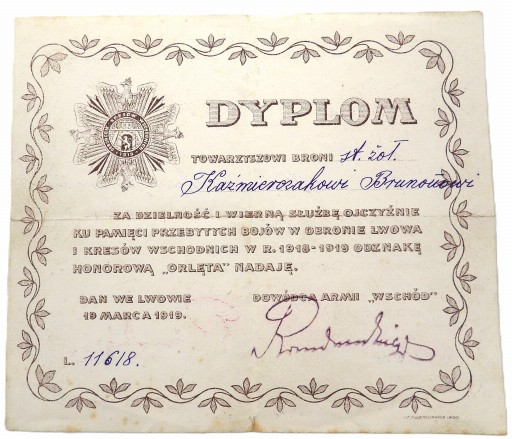 DYPLOM
TOWARZYSZOWI BRONI st. żoł.
Kaźmierczakowi Brunonowi
ZA DZIELNOŚĆ I WIERNĄ SŁUŻBĘ OJCZYŹNIE
KU PAMIĘCI PRZEBYTYCH BOJÓW W OBRONIE LWOWA
I KRESÓW WSCHODNICH W R. 1918-1919 ODZNAKĘ
HONOROWĄ „ORLĘTA" NADAJĘ.
DAN WE LWOWIE
19 MARCA 1919.
DOWÓDCA ARMII „WSCHÓD"
L. 11618.